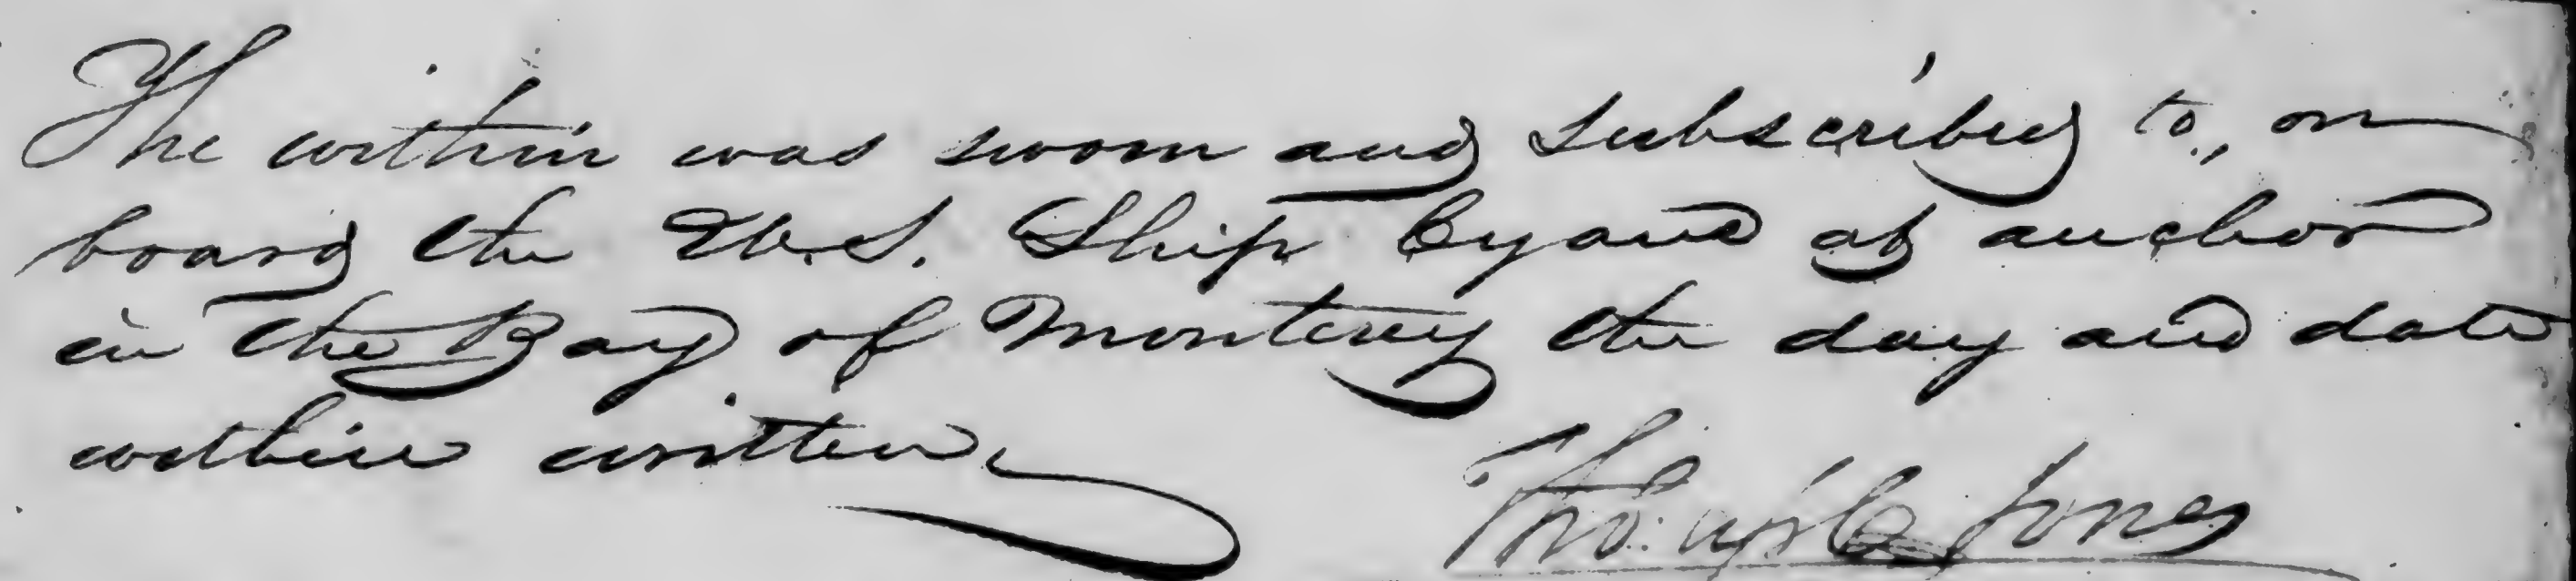 The within was sworn and subscribed to, on
board the U.S. Ship Cyane at anchor
in the Bay of Monterey the day and date
within written
Thos. Ap C Jones